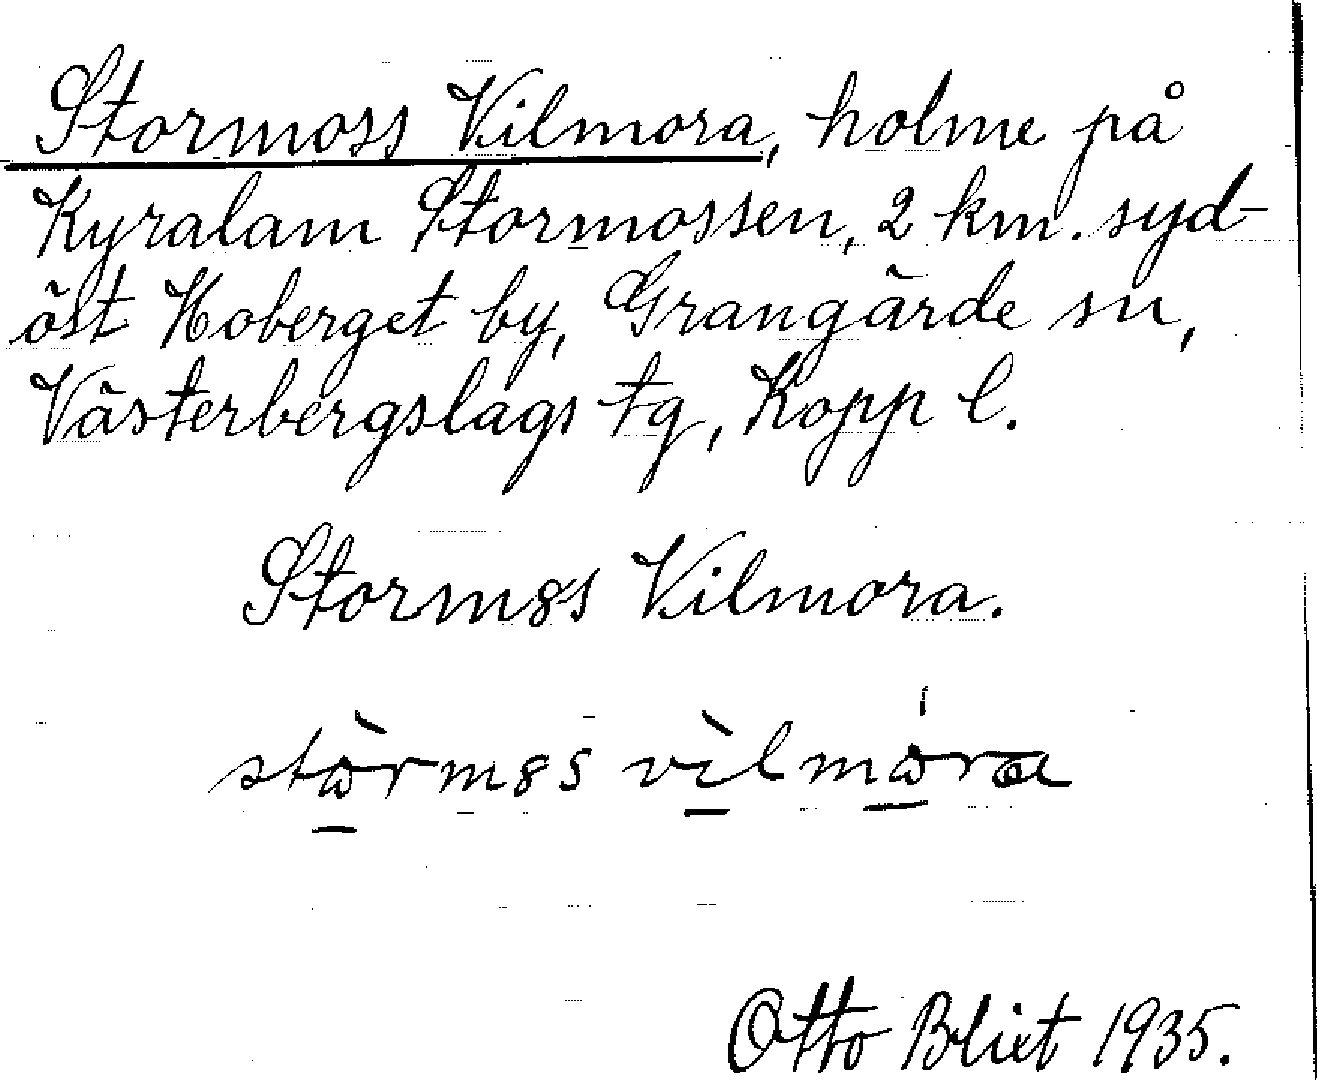 Stormoss Vilmora, holme på
Kyralam Stormossen, 2 km. syd-
öst Hoberget by, Grangärde sn,
Västerbergslags tg, Kopp l.
Storm8s Vilmora.
stòrm8s vìlmóra
Otto Blixt 1935.